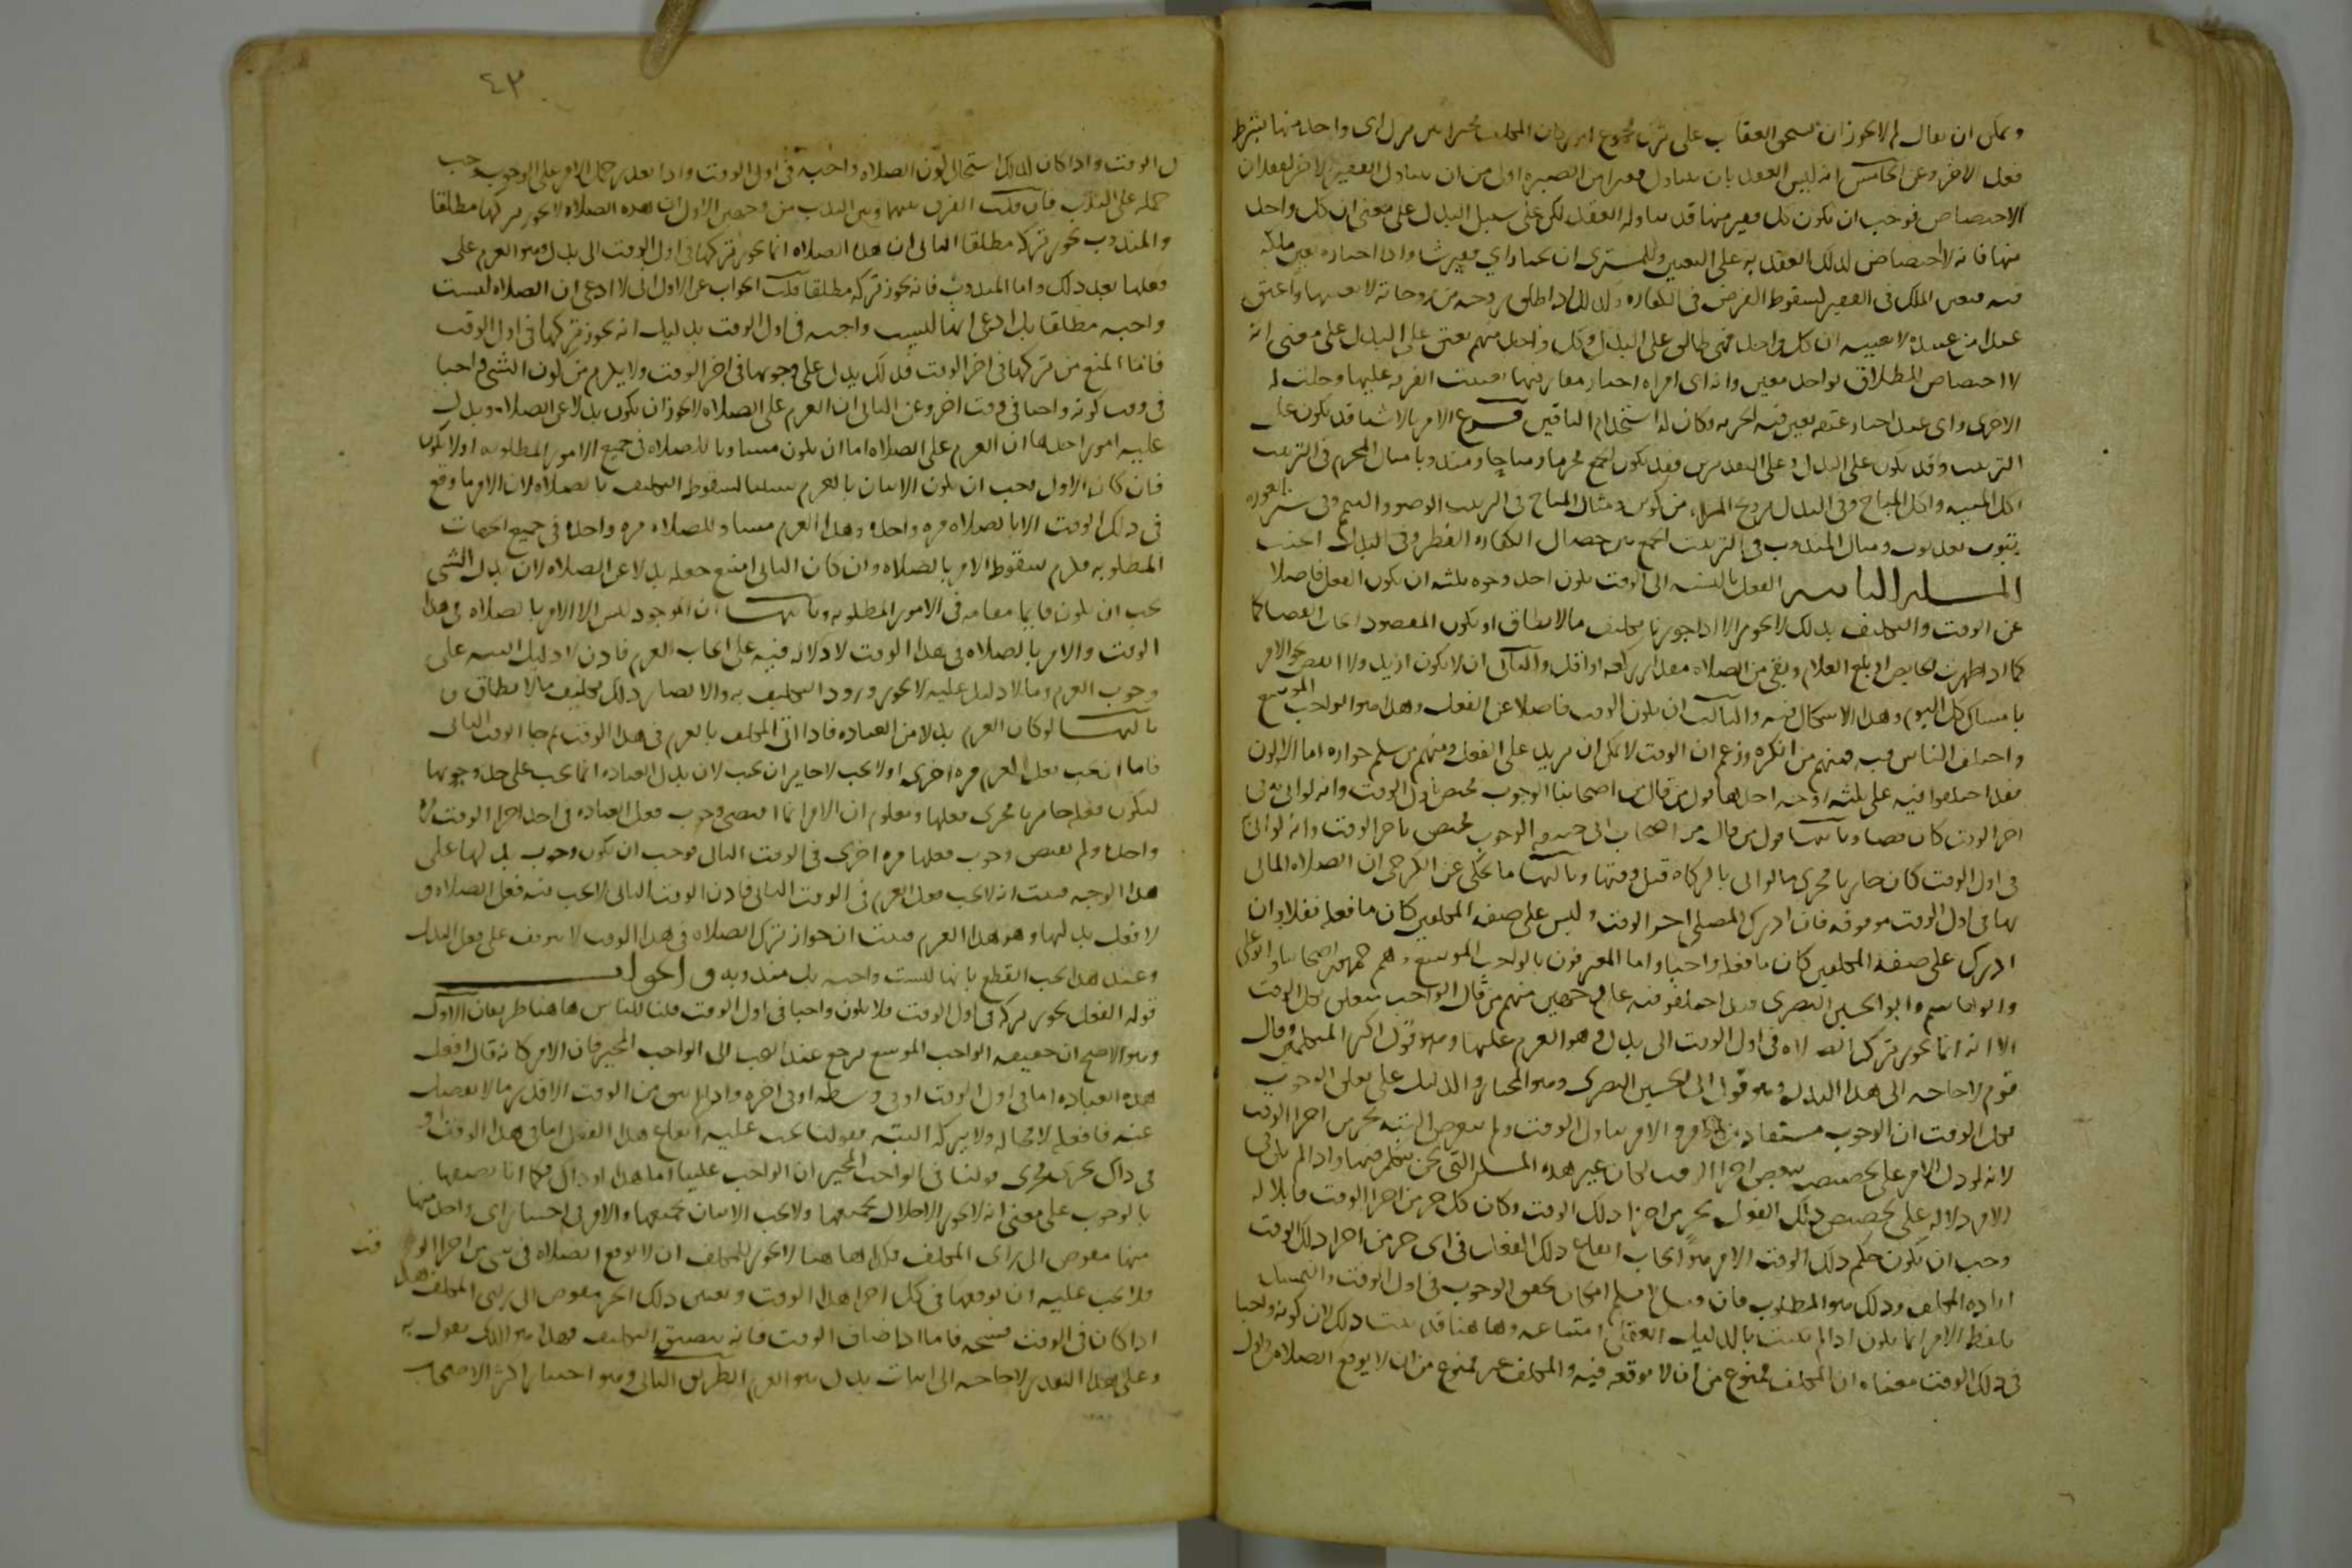 ويمكن ان يقال لم لا يجوز ان يستحق العقاب على ترك مجموع امور كان المكلف مخيرا بين ترك اى واحد منها بشرط
فعل الاخر وعن الخامس انه ليس العقد بان يتناول قفيزا من الصبرة اولى من ان يتناول القفيز الاخر لفقدان
الاختصاص فوجب ان يكون كل قفيز منها قد تناوله العقد لكن على سبيل البدل على معنى ان كل واحد
منها فانه لا اختصاص لذلك العقد به على التعيين وللمشترى ان يختار اي قفيز شا واذا اختاره تعين ملكه
فيه فتعين الملك فى القفيز كسقوط الفرض فى الكفارة وكذلك اذا طلق زوجة من زوجاته لا بعينها واعتق
عبدا من عبيده لا بعينه ان كل واحدة منهن طالق على البدل وكل واحد منهم يعتق على البدل على معنى انه
لا اختصاص للطلاق بواحدة معين وانه اى امراة اختار مفارقتها تعينت الفرقة عليها وحلت له
الاخرى واى عبد اختار عتقه تعين فيه الحرية وكان له استخدام الباقين فرع الامر بالاشيا قد يكون على
الترتيب وقد يكون على البدل وعلى التقديرين فقد يكون الجمع محرما ومباحا ومندوبا مثال المحرم فى الترتيب
اكل الميتة واكل المباح وفى البدل تزويج المراة من كفوين ومثال المباح فى الترتيب الوضو والتيمم وفى ستر العورة
بثوب بعد ثوب ومثال المندوب فى الترتيب الجمع بين خصال الكفارة الفطر وفى البدل الحنث
المسلة الثانية الفعل بالنسبة الى الوقت يكون احد وجوه ثلثة ان يكون الفعل فاضلا
عن الوقت والتكليف بذلك لا يجوز الا اذا جوزنا تكليف ما لا يطاق او يكون المقصود ايجاب القضا كما
كما اذا طهرت الحايض او بلغ الغلام وبقى من الصلاة مقدار ركعة او اقل والثانى ان لا يكون ازيد ولا انقص نحو الامر
بامساك كل اليوم وهذا لا اشكال فيه والثالث ان يكون الوقت فاضلا عن الفعل وهذا هو الواجب الموسع
واختلف الناس فيه فمنهم من انكره وزعم ان الوقت لا يمكن ان يزيد على الفعل ومنهم من سلم جوازه اما الاولون
فقد اختلفوا فيه على ثلثة اوجه احدها قول من قال من اصحابنا الوجوب مختص باول الوقت وانه لو اتى به فى
اخر الوقت كان قضا وثانيها قول من قال من اصحاب ابى حنيفة الوجوب مختص باخر الوقت وانه لو اتى به
فى اول الوقت كان جاريا مجرى ما لو اتى بالزكاة قبل وقتها وثالثها ما يحكى عن الكرخى ان الصلاة الماتى
بها فى اول الوقت موقوفة فان ادرك المصلى اخر الوقت وليس على صفة المكلفين كان ما فعله نفلا وان
ادرك على صفة المكلفين كان ما فعله واجبا واما المعترفون بالواجب الموسع وهم جمهور اصحابنا وابو على
وابو هاشم وابو الحسين البصرى فقد اختلفوا فيه على وجهين منهم من قال الواجب متعلق بكل الوقت
الا انه انما يجوز ترك الصلاة فى اول الوقت الى بدل وهو العزم عليها وهو قول اكثر المتكلمين وقال
قوم لا حاجة الى هذا البدل وهو قول ابى الحسين البصرى وهو المختار والدليل على تعلق الوجوب
بكل الوقت ان الوجوب مستفاد من الامر والامر تناول الوقت ولم يتعرض البتة لجزء من اجزا الوقت
لانه لو دل الامر على تخصيصه ببعض اجزا الوقت لكان غير هذه المسلة التى نحن نتكلم فيها واذا لم يكن فى
الامر دلالة على تخصيص ذلك الفعل بجزء من اجزا ذلك الوقت وكان كل جزء من اجزا الوقت قابلا له
وجب ان يكون حكم ذلك الوقت الامر هو ايجاب ايقاع ذلك الفعل فى اى جزء من اجزا ذلك الوقت
اراده المكلف وذلك هو المطلوب فان قيل لا نسلم امكان تحقق الوجوب فى اول الوقت والتمسك
بلفظ الامر انما يكون اذا لم يثبت بالدليل العقلى امتناعه وهاهنا قد ثبت ذلك لان كونه واجبا
فى ذلك الوقت معناه ان المكلف ممنوع من ان لا يوقعه فيه والمكلف غير ممنوع من ان لا يوقع الصلاة فى اول
٤٣
ل الوقت واذا كان كذلك استحال كون الصلاة واجبة فى اول الوقت واذا تعذر حمل الامر على الوجوب وجب
حمله على الندب فان قلت الفرق بينهما وبين الندب من وجهين الاول ان هذه الصلاة لا يجوز تركها مطلقا
والمندوب يجوز تركه مطلقا الثانى ان هذه الصلاة انما يجوز تركها فى اول الوقت الى بدل وهو العزم على
فعلها بعد ذلك واما المندوب فانه يجوز تركه مطلقا قلت الجواب عن الاول انى لا ادعى ان الصلاة ليست
واجبة مطلقا بل ادعى انها ليست واجبة فى اول الوقت بدليل انه يجوز تركها فى اول الوقت
فاما المنع من تركها فى اخر الوقت فذلك يدل على وجوبها فى اخر الوقت ولا يلزم من كون الشى واجبا
فى وقت كونه واجبا فى وقت اخر وعن الثانى ان العزم على الصلاة لا يجوز ان يكون بدلا عن الصلاة ويدل
عليه امور احدها ان العزم على الصلاة اما ان يكون مساويا للصلاة فى جميع الامور المطلوبة او لا يكون
فان كان الاول وجب ان يكون الاتيان بالعزم سببا لسقوط التكليف بالصلاة لان الامر ما وقع
فى ذلك الوقت الا بالصلاة مرة واحدة وهذا العزم مساو للصلاة مرة واحدة فى جميع الجهات
المطلوبة فيلزم سقوط الامر بالصلاة وان كان الثانى امتنع جعله بدلا عن الصلاة لان بدل الشى
يجب ان يكون قايما مقامه فى الامور المطلوبة وثانيها ان الموجود ليس الا الامر بالصلاة فى هذا
الوقت والامر بالصلاة فى هذا الوقت لا دلالة فيه على ايجاب العزم فاذن لا دليل البتة على
وجوب العزم وما لا دليل عليه لا يجوز ورود التكليف به والا لصار ذلك تكليف ما لا يطاق و
ثالثها لو كان العزم بدلا من العبادة فاذا اتى المكلف بالعزم فى هذا الوقت ثم جا الوقت الثانى
فاما ان يجب فعل العزم مرة اخرى او لا يجب لا جايز ان يجب لان بدل العبادة انما يجب على حد وجوبها
ليكون فعله جاريا مجرى فعلها ومعلوم ان الامر انما اقتضى وجوب فعل العبادة فى احد اجزا الوقت مرة
واحدة ولم يقتض وجوب فعلها مرة اخرى فى الوقت الثانى فوجب ان يكون وجوب بدلها على
هذا الوجه فثبت انه لا يجب فعل العزم فى الوقت الثانى فاذن الوقت الثانى لا يجب فيه فعل الصلاة و
لا فعل بدلها وهو هذا العزم فثبت ان جواز ترك الصلاة فى هذا الوقت لا يتوقف على فعل البدل
وعند هذا يجب القطع بانها ليست واجبة بل مندوبة والجواب
قوله الفعل يجوز تركه فى اول الوقت فلا يكون واجبا فى اول الوقت قلنا للناس هاهنا طريقان الاول
وهو الاصح ان حقيقة الواجب الموسع ترجع عند البحث الى الواجب المخير فان الامر كانه قال افعل
هذه العبادة اما فى اول الوقت او فى وسطه او فى اخره واذا لم يبق من الوقت الا قدر ما لا يفضل
عنه فافعله لا محالة ولا تتركه البتة فقولنا يجب عليه ايقاع هذا الفعل اما فى هذا الوقت او
فى ذاك يجرى مجرى قولنا فى الواجب المخير ان الواجب علينا اما هذا او ذاك فكما انا نصفها
بالوجوب على معنى انه لا يجوز الاخلال بجميعها ولا يجب الاتيان بجميعها والامر فى اختيار اى واحد منها
منها مفوض الى راى المكلف فكذا هاهنا لا يجوز للمكلف ان لا يوقع الصلاة فى شى من اجزا الو قت
ولا يجب عليه ان يوقعها فى كل اجزا هذا الوقت وتعيين ذلك الجزء مفوض الى راى المكلف هذا
اذا كان فى الوقت فسحة فاما اذا ضاق الوقت فانه يتضيق التكليف فهذا هو الذى نقول به
وعلى هذا التقدير لا حاجة الى اثبات بدل هو العزم الطريق الثانى وهو اختيار اكثر الاصحاب